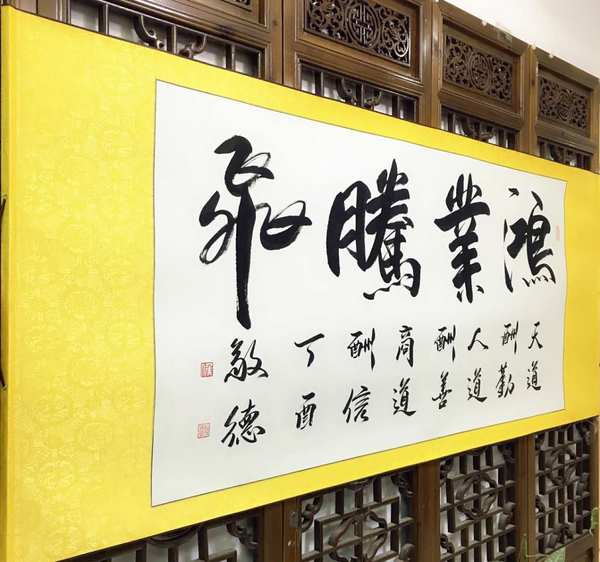 鴻業騰飛
天道
酬勤
人道
酬善
商道
酬信
丁酉
敬德